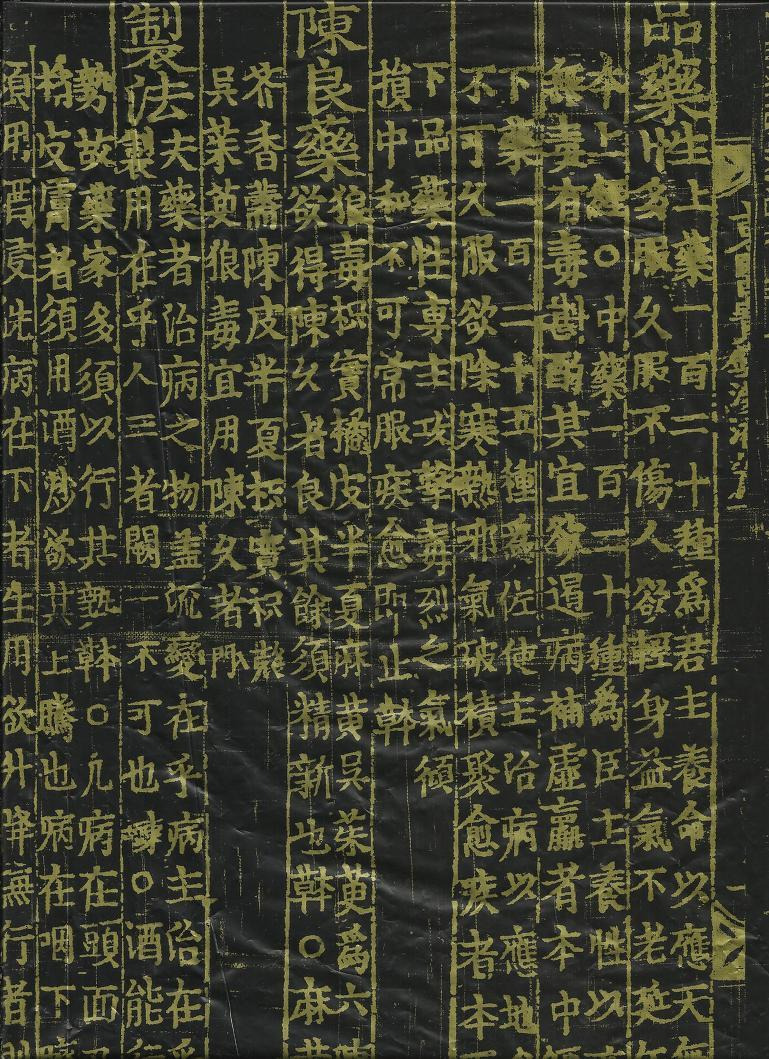 品藥性
上藥一百二十種爲君主養命以應天
多服久服不傷人欲輕身益氣不老延
本上經○中藥一百二十種爲臣主養性以
無毒有毒斟酌其宜欲遏病補虛羸者本中
下藥一百二十五種爲佐使主治病以應地
不可久服欲除寒熱邪氣破積聚愈疾者本
下品藥性專主攻擊毒烈之氣傾
損中和不可常服疾愈即止
陳良藥
狼毒枳實橘皮半夏麻黃吳茱萸爲六陳
欲得陳久者良其餘須精新也○麻黃
芥香薷陳皮半夏枳實枳殼
吳茱萸狼毒宜用陳久者門
製法
夫藥者治病之物盖流變在乎病主治在乎
製用在乎人三者闕一不可也○酒能行
勢故藥家多須以行其勢○凡病在頭面
指皮膚者須用酒炒欲其上騰也病在咽下
須用酒浸洗病在下者生用欲升降兼行者